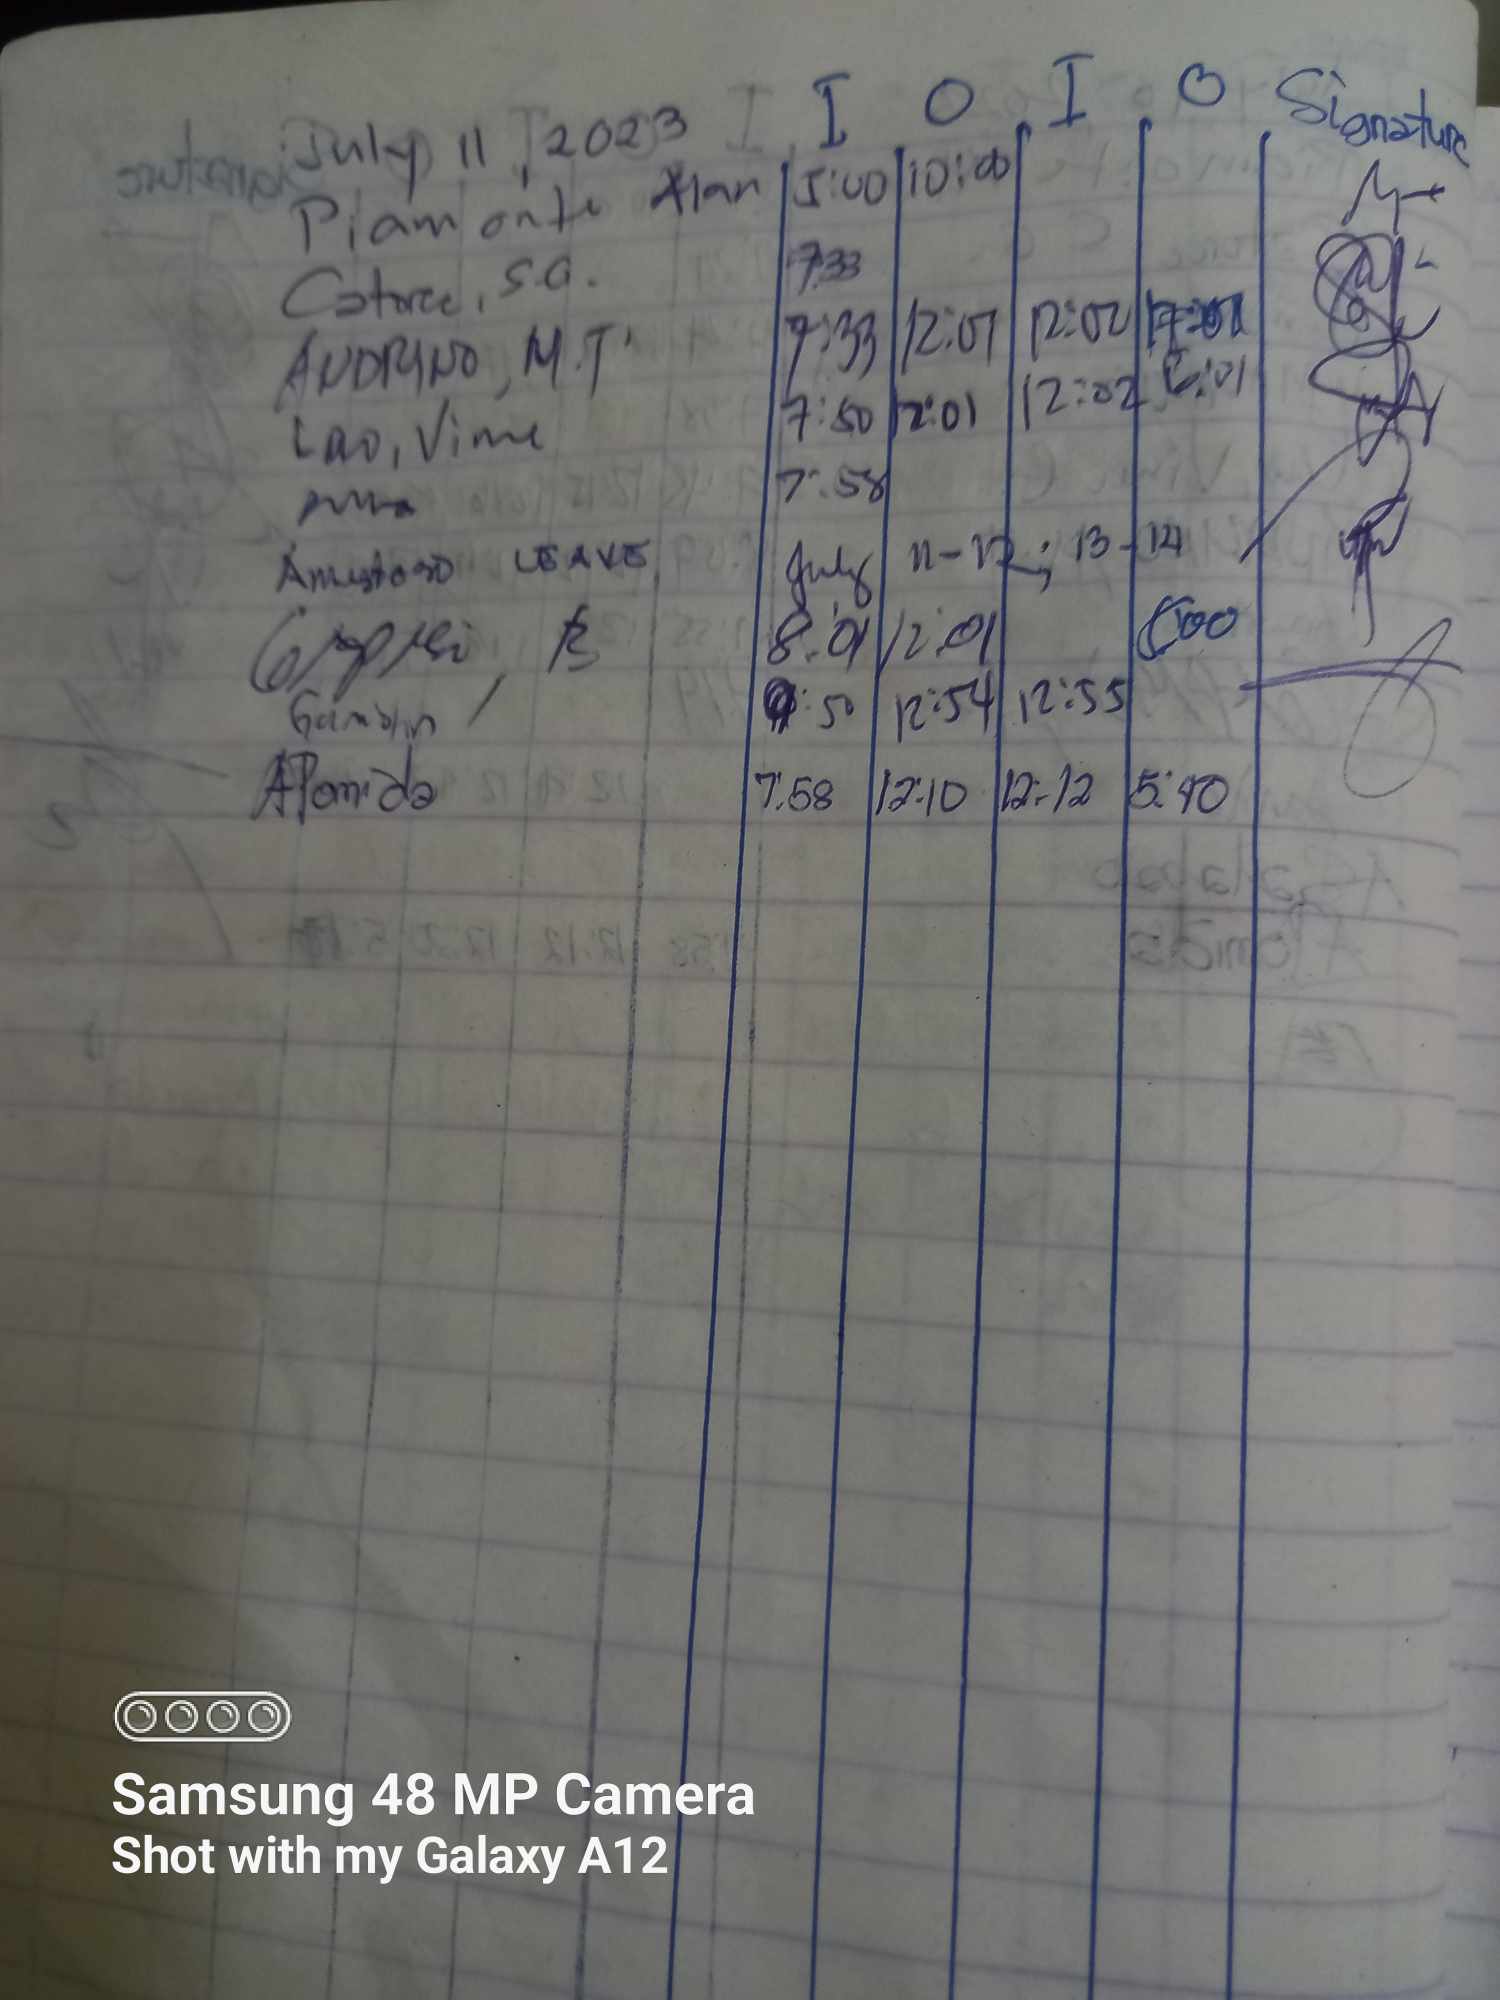 I O I O Signature
July 11, 2023
Piamonte Alan 5:00 10:00
Catorce, S.G. 7:33
ANDRINO, M.T. 7:33 12:01 12:02
Lao, Vime 7:50 12:01 12:02 5:01
7:58
LEAVE July 11-12; 13-14
8:01 12:01 5:00
:50 12:54 12:55
Alomida 7:58 12:10 12:12 5:40
Samsung 48 MP Camera
Shot with my Galaxy A12